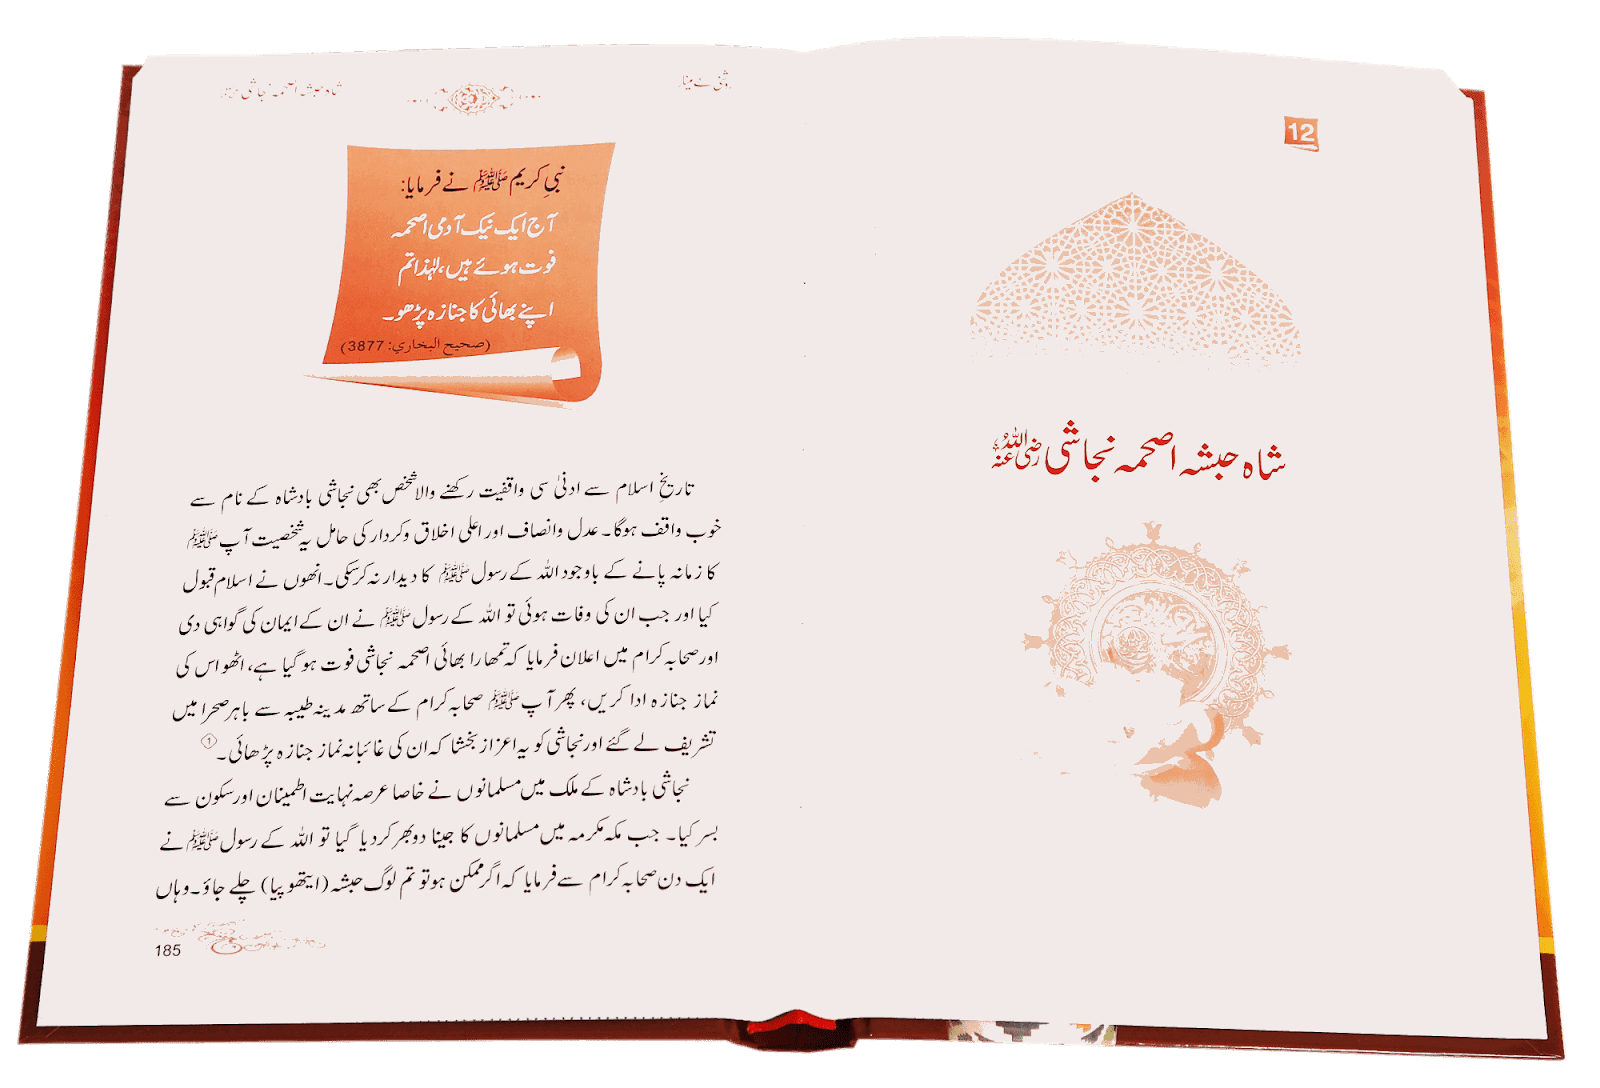 12
شاہ حبشہ اصحمہ نجاشی رضی اللہ عنہ
شاہ حبشہ اصحمہ نجاشی
نبیِ کریم ﷺ نے فرمایا:
آج ایک نیک آدمی اصحمہ
فوت ہوئے ہیں، لہٰذا تم
اپنے بھائی کا جنازہ پڑھو۔
(صحيح البخاري: 3877)
تاریخِ اسلام سے ادنیٰ سی واقفیت رکھنے والا شخص بھی نجاشی بادشاہ کے نام سے
خوب واقف ہوگا۔ عدل وانصاف اور اعلی اخلاق وکردار کی حامل یہ شخصیت آپ ﷺ
کا زمانہ پانے کے باوجود اللہ کے رسول ﷺ کا دیدار نہ کرسکی۔ انھوں نے اسلام قبول
کیا اور جب ان کی وفات ہوئی تو اللہ کے رسول ﷺ نے ان کے ایمان کی گواہی دی
اور صحابہ کرام میں اعلان فرمایا کہ تمھارا بھائی اصحمہ نجاشی فوت ہو گیا ہے، اٹھو اس کی
نماز جنازہ ادا کریں، پھر آپ ﷺ صحابہ کرام کے ساتھ مدینہ طیبہ سے باہر صحرا میں
تشریف لے گئے اور نجاشی کو یہ اعزاز بخشا کہ ان کی غائبانہ نماز جنازہ پڑھائی۔ ①
نجاشی بادشاہ کے ملک میں مسلمانوں نے خاصا عرصہ نہایت اطمینان اور سکون سے
بسر کیا۔ جب مکہ مکرمہ میں مسلمانوں کا جینا دوبھر کر دیا گیا تو اللہ کے رسول ﷺ نے
ایک دن صحابہ کرام سے فرمایا کہ اگر ممکن ہو تو تم لوگ حبشہ (ایتھوپیا) چلے جاؤ۔ وہاں
185